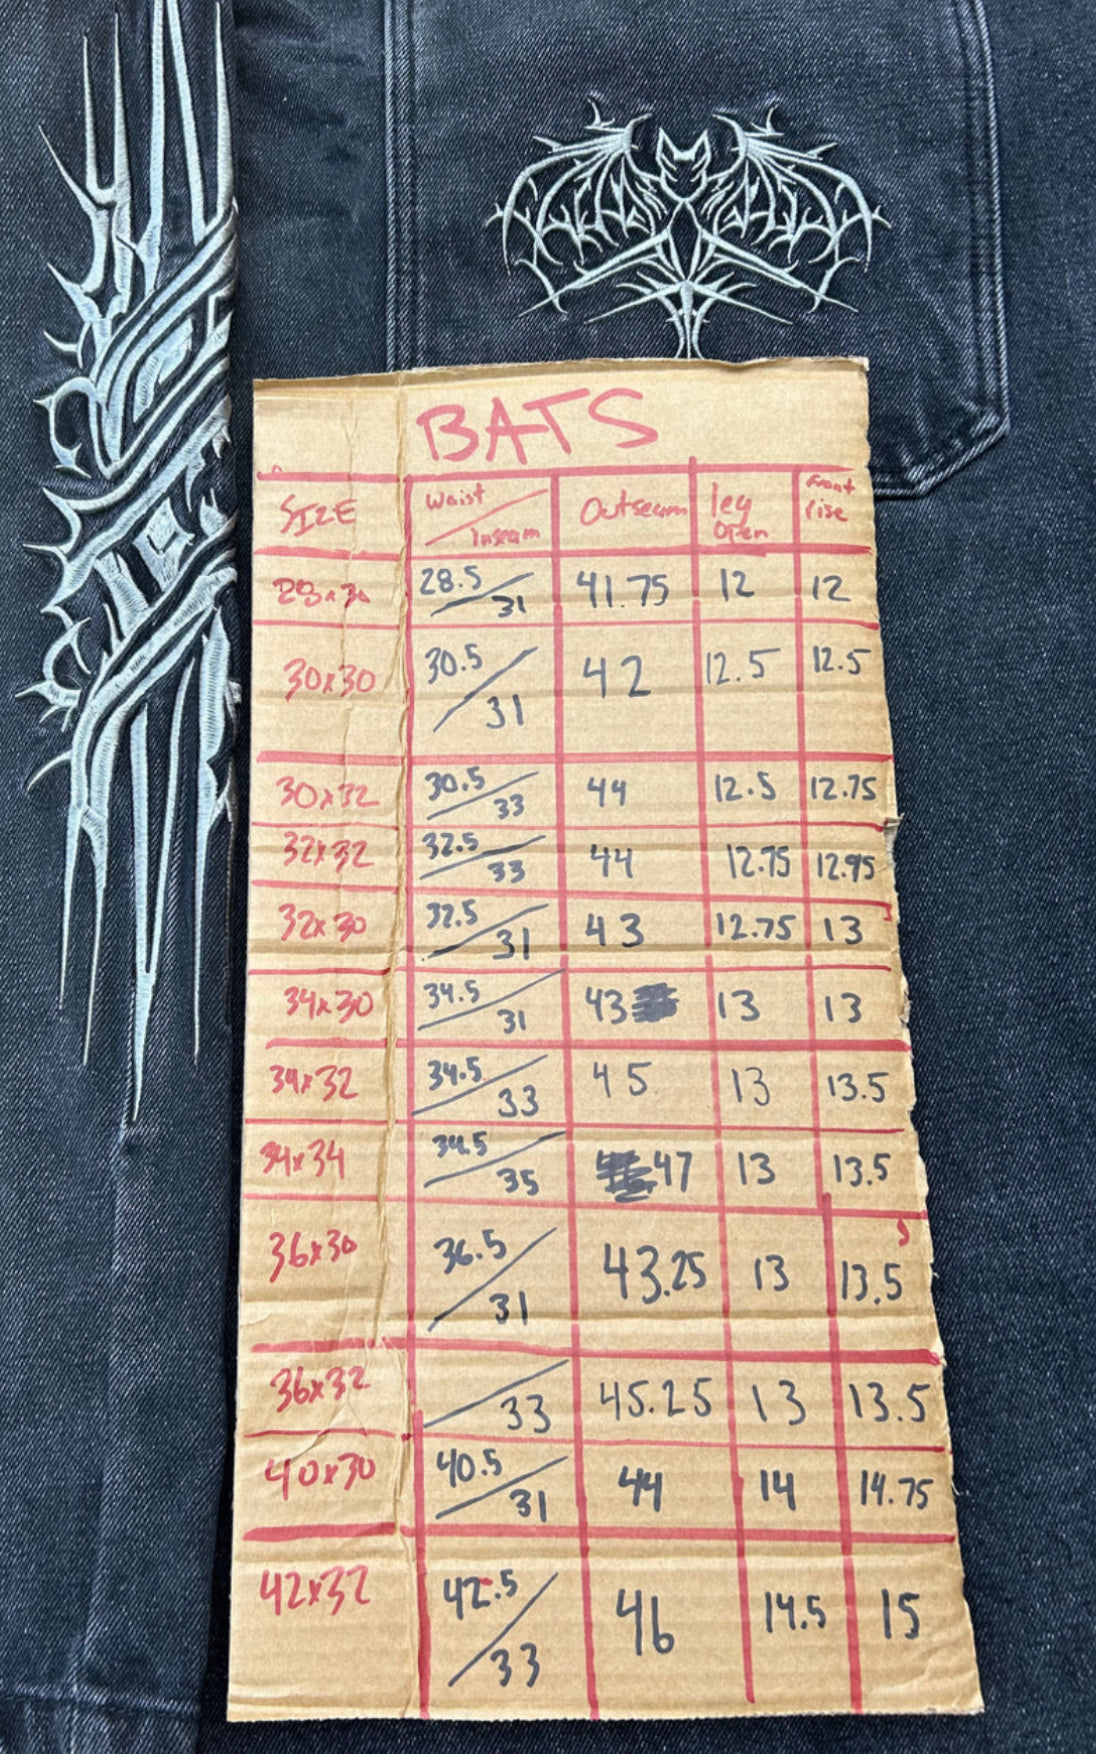 BATS
SIZE Waist / Inseam Outseam leg Open Front rise
28x30 28.5/31 41.75 12 12
30x30 30.5/31 42 12.5 12.5
30x32 30.5/33 44 12.5 12.75
32x32 32.5/33 44 12.75 12.95
32x30 32.5/31 43 12.75 13
34x30 34.5/31 43 13 13
34x32 34.5/33 45 13 13.5
34x34 34.5/35 47 13 13.5
36x30 36.5/31 43.25 13 13.5
36x32 /33 45.25 13 13.5
40x30 40.5/31 44 14 14.75
42x32 42.5/33 46 14.5 15